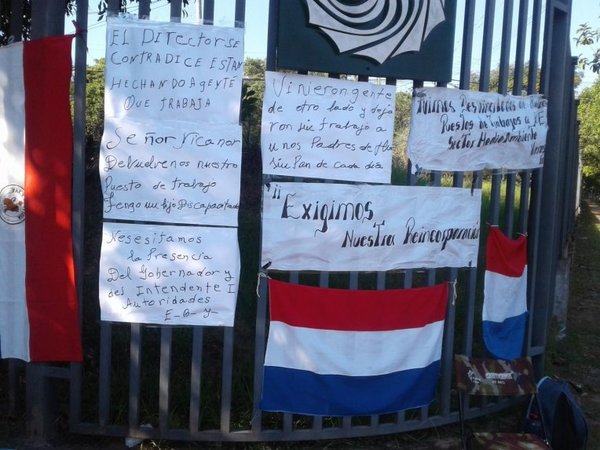 EL DirectorSE
CONTRADICE ESTAN
HECHANDO AGENTE
QUE TRABAJA
SEÑOR Nicanor
Devuelvenos nuestro
Puesto de trabajo
Tengo un hijo Discapacitado
Nesesitamos
la Presencia
Del Gobernador y
des Intendente I
Autoridades
E-B-Y-
Vinierongente
de otro lado y deja
ron sin trabajo a
unos Padres de fla
sin Pan de cada dia
¡¡Exigimos
Nuestra Reincorporación
Puestos de Trabajos a
Sector Medio Ambiente